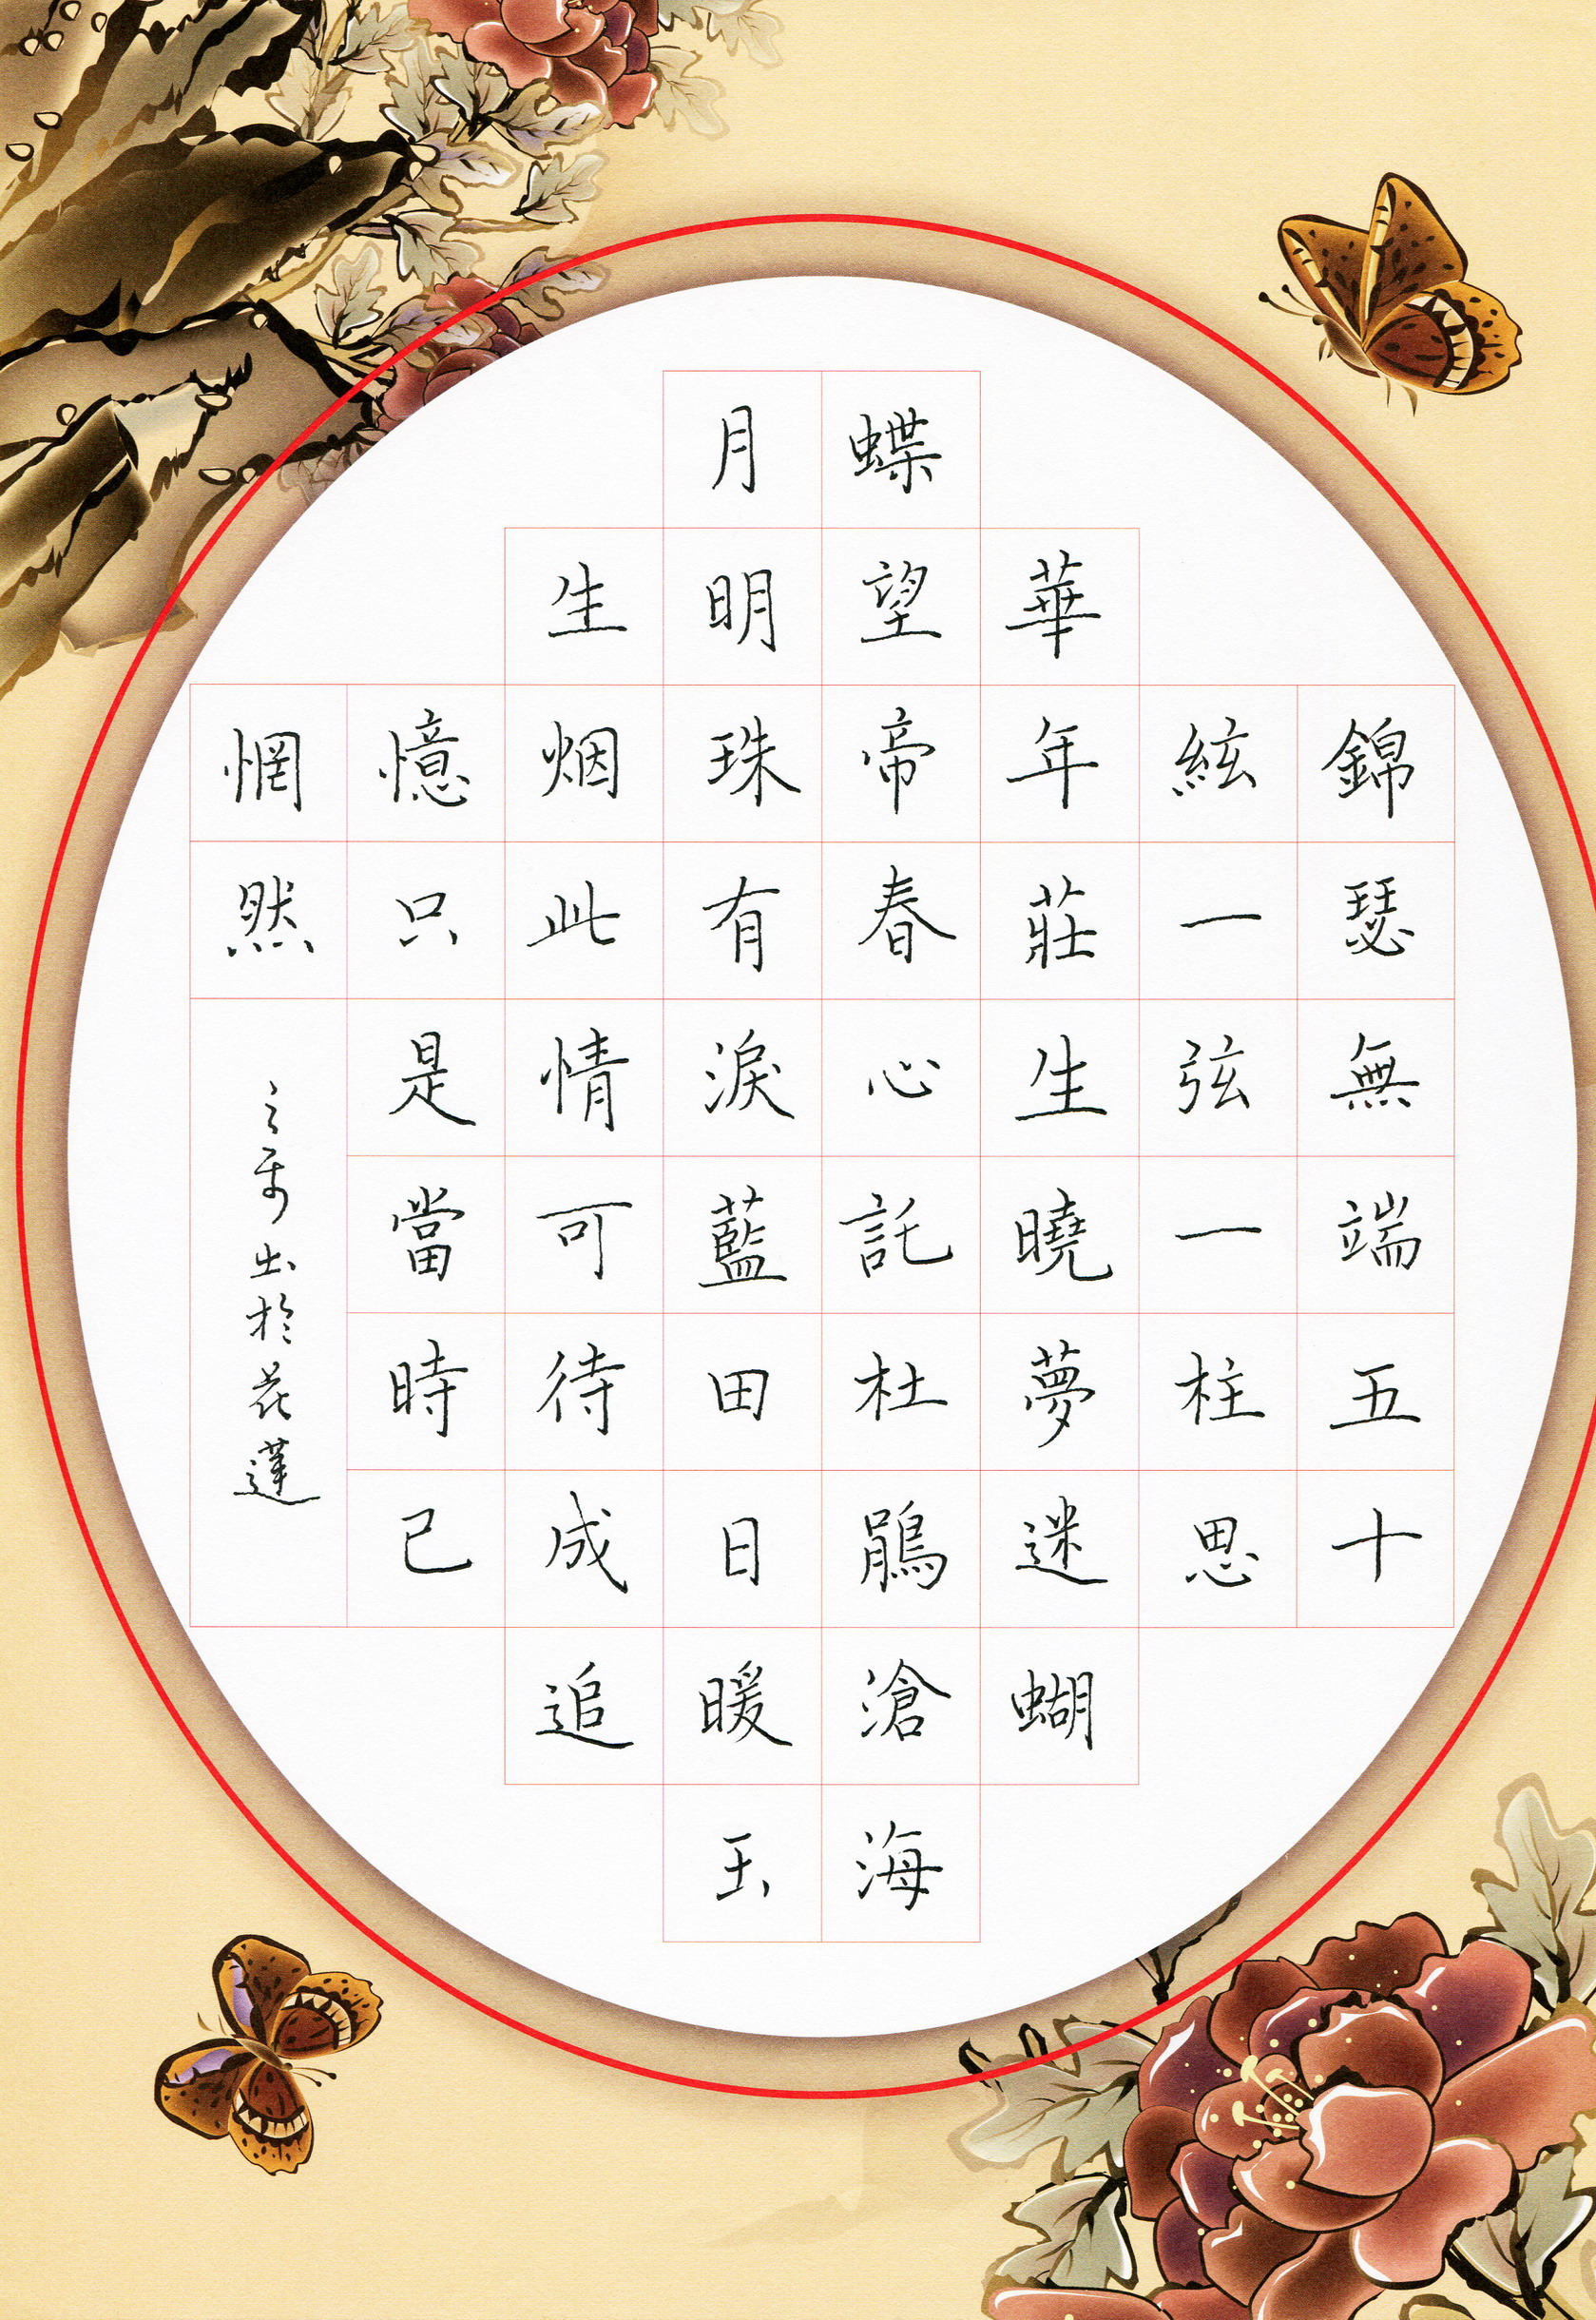 錦瑟無端五十
絃一弦一柱思
華年莊生曉夢迷蝴
蝶望帝春心託杜鵑滄海
月明珠有淚藍田日暖玉
生烟此情可待成追
憶只是當時已
惘然
出於花蓮